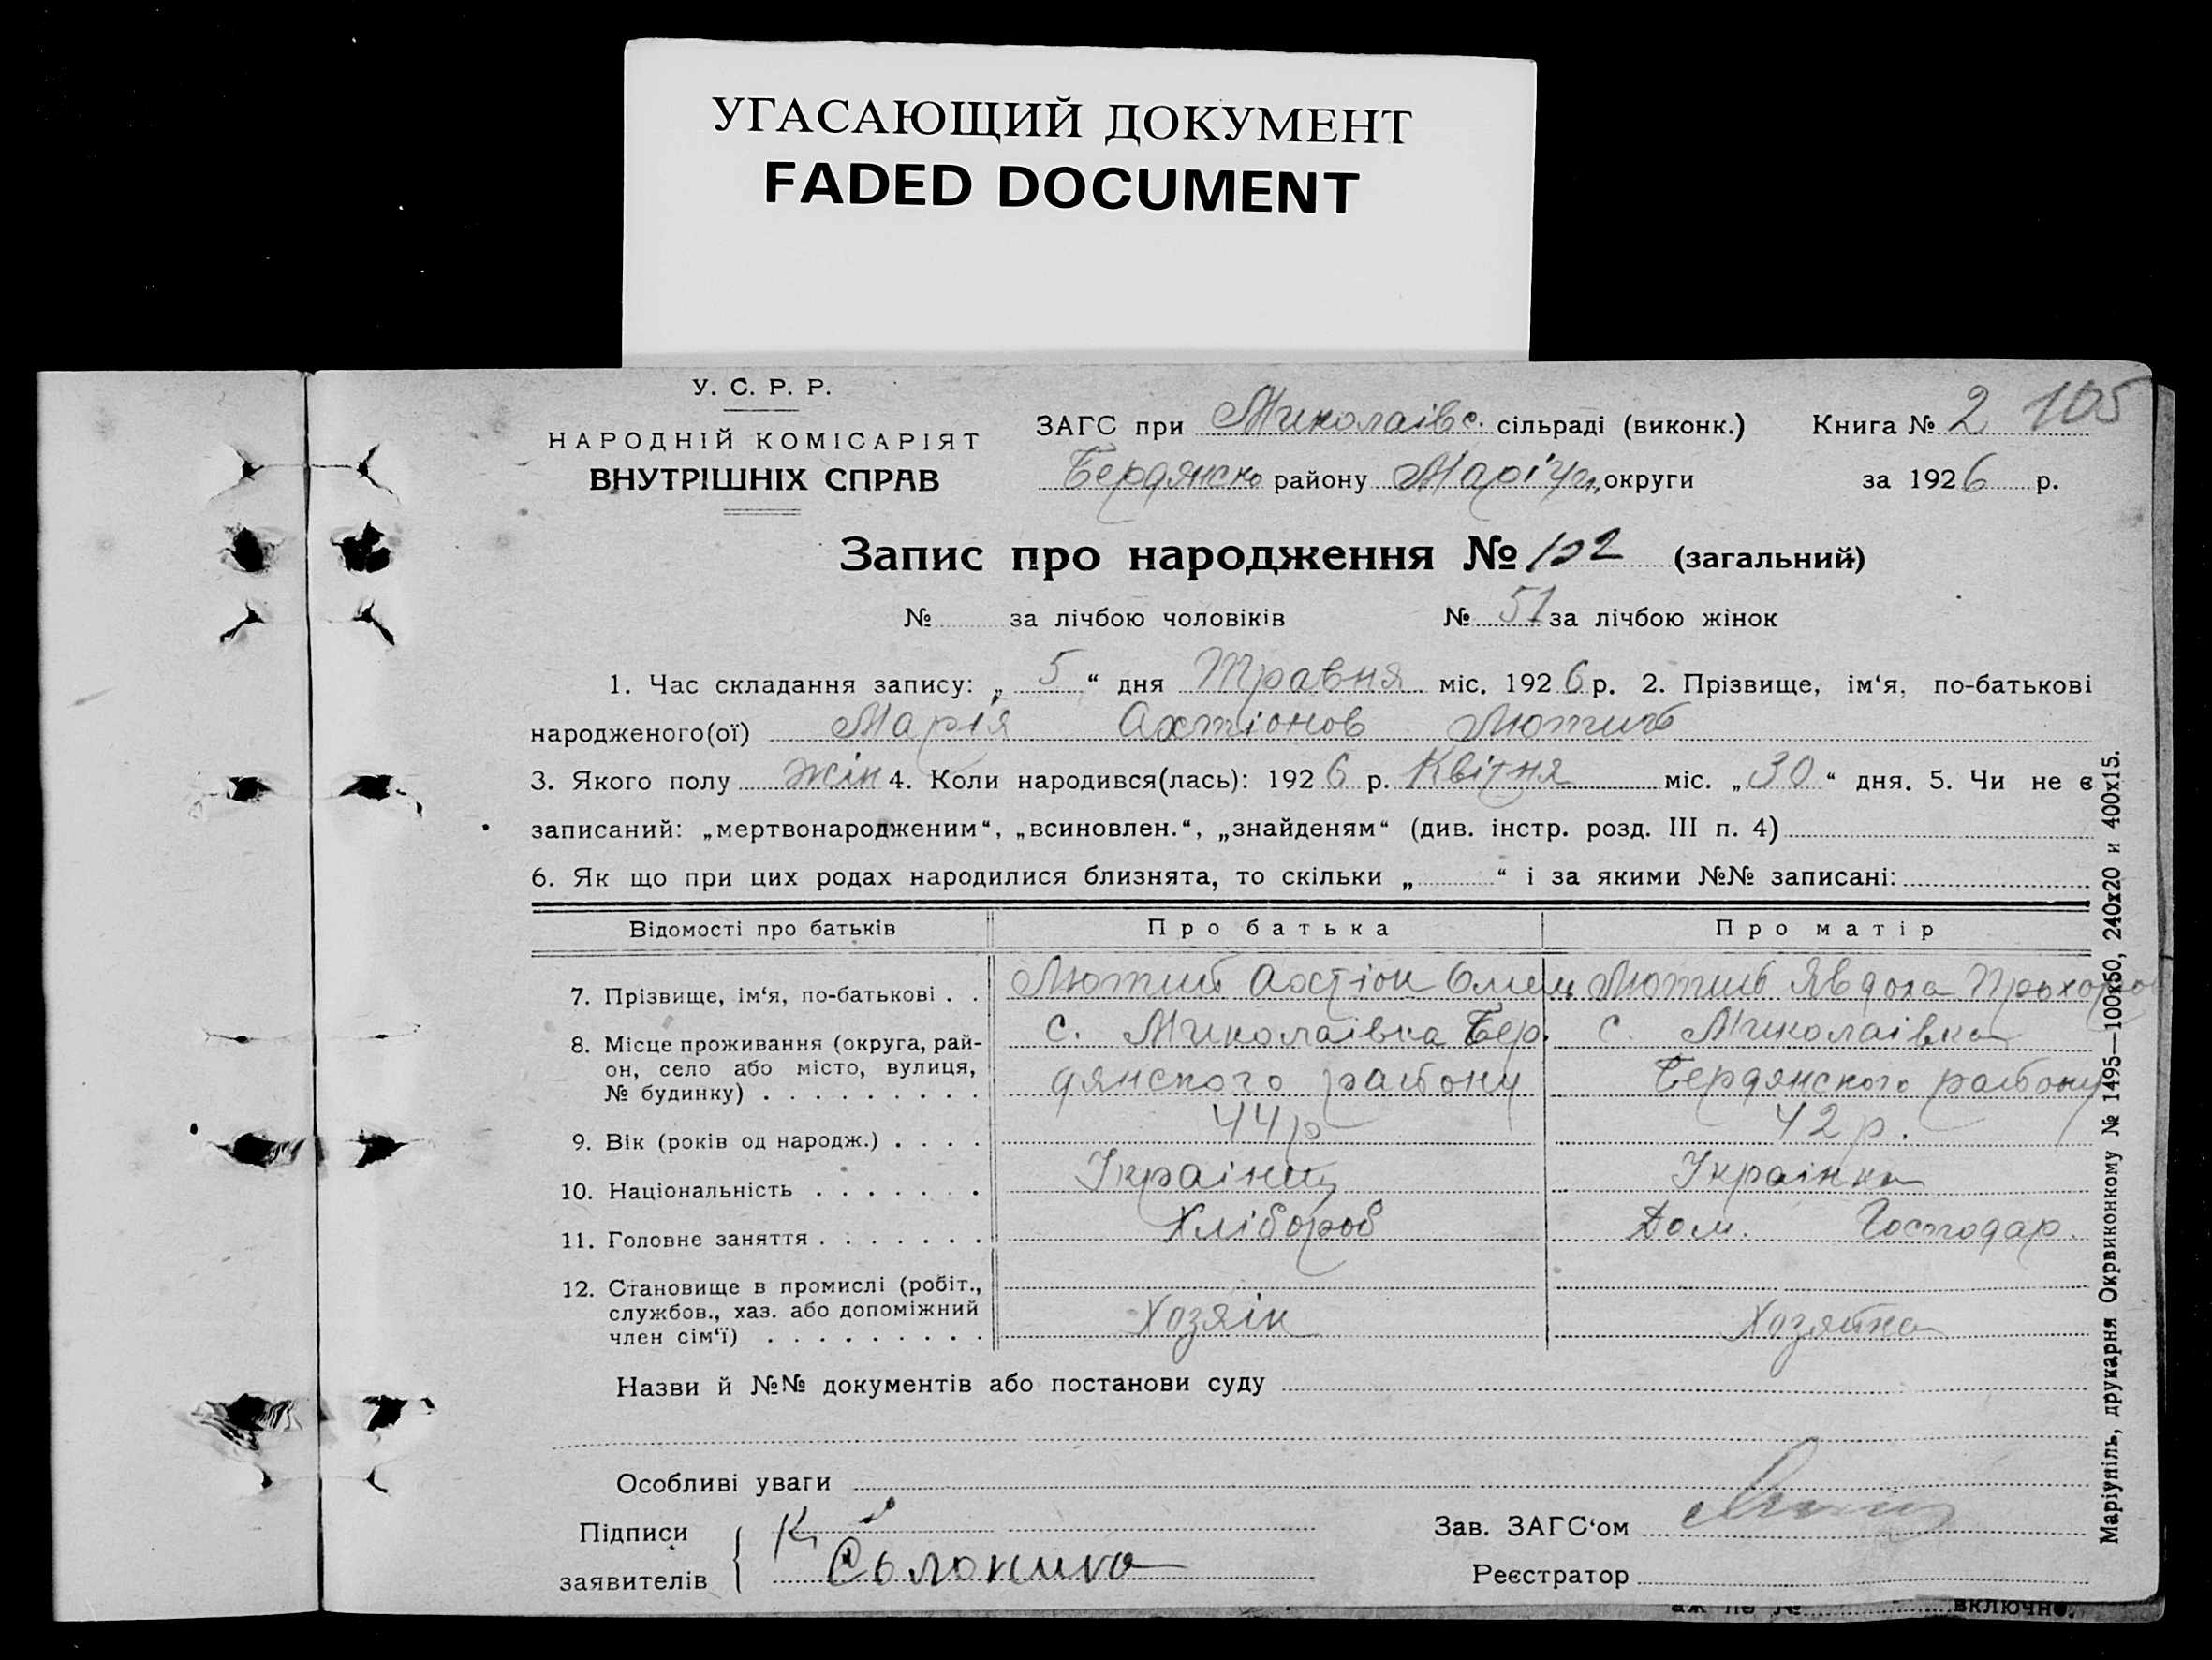 УГАСАЮЩИЙ ДОКУМЕНТ
FADED DOCUMENT
У. С. Р. Р.
НАРОДНІЙ КОМІСАРІЯТ
ВНУТРІШНІХ СПРАВ
ЗАГС при Миколаівс. сільраді (виконк.) Книга № 2 105
Бердянско району Маріуп. округи за 1926 р.
Запис про народження № 102 (загальний)
№ за лічбою чоловіків № 51 за лічбою жінок
1. Час складання запису: „ 5 “ дня Травня міс. 1926 р. 2. Прізвище, ім‘я, по-батькові
народженого(ої) Марія Ахтіонов Лютий
3. Якого полу жін 4. Коли народився(лась): 1926 р. Квітня міс. „ 30 “ дня. 5. Чи не є
записаний: „мертвонародженим“, „всиновлен.“, „знайденям“ (див. інстр. розд. III п. 4)
6. Як що при цих родах народилися близнята, то скільки „ “ і за якими №№ записані:
Відомості про батьків Про батька Про матір
7. Прізвище, ім‘я, по-батькові . . Лютий Лютий Явдоха Прохоров
8. Місце проживання (округа, рай- с. Миколаівка Бер. с. Миколаівка
он, село або місто, вулиця, дянского району Бердянского району
№ будинку) . . . . . . . . .
9. Вік (років од народж.) . . . . 44 р 42 р.
10. Національність . . . . . . . Украінец Украінка
11. Головне заняття . . . . . . . Хлібороб Дом. Господар.
12. Становище в промислі (робіт.,
службов., хаз. або допоміжний Хозяін Хозяйка
член сім‘ї) . . . . . . . . .
Назви й №№ документів або постанови суду
Особливі уваги
Підписи К Зав. ЗАГС‘ом
заявителів Реєстратор
Маріупіль, друкарня Окрвиконкому № 1495—100х50, 240х20 и 400х15.
аж по № включно.